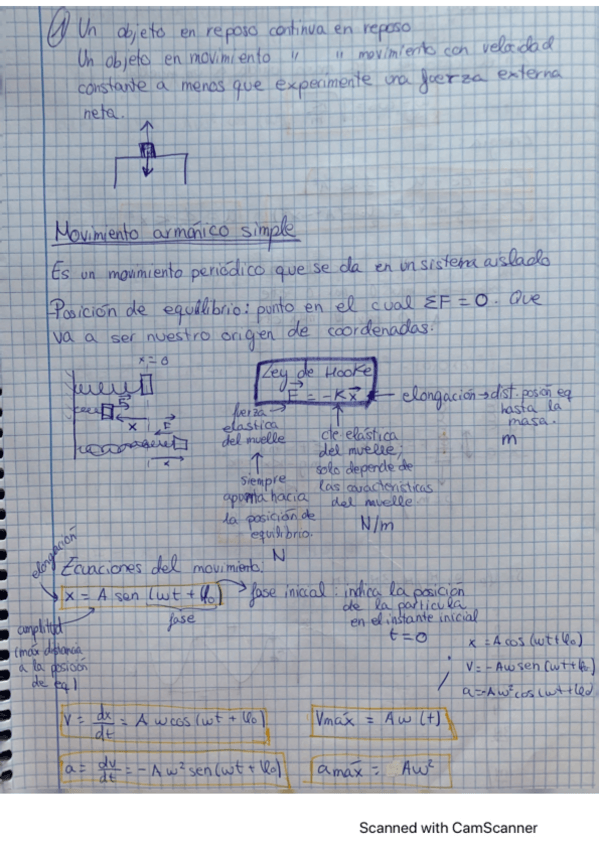 ① Un objeto en reposo continua en reposo
Un objeto en movimiento " " movimiento con velocidad
constante a menos que experimente una fuerza externa
neta.
Movimiento armónico simple
Es un movimiento periódico que se da en un sistema aislado
Posición de equilibrio: punto en el cual ΣF = 0. Que
va a ser nuestro origen de coordenadas.
x = 0
F
x
F
x
Ley de Hooke
F = -Kx
elongación → dist. posición eq
hasta la
masa.
m
fuerza
elastica
del muelle
siempre
apunta hacia
la posición de
equilibrio.
N
cte elástica
del muelle,
solo depende de
las características
del muelle
N/m
Ecuaciones del movimiento!
elongación
x = A sen (ωt + φ₀)
fase
fase inicial: indica la posición
de la partícula
en el instante inicial
t = 0
amplitud
(máx distancia
a la posición
de eq)
x = A cos (ωt + φ₀)
V = -Aω sen (ωt + φ₀)
a = -Aω² cos (ωt + φ₀)
V = dx/dt = A ω cos (ωt + φ₀)
Vmáx = Aω (t)
a = dv/dt = -Aω² sen (ωt + φ₀)
amáx = Aω²
Scanned with CamScanner